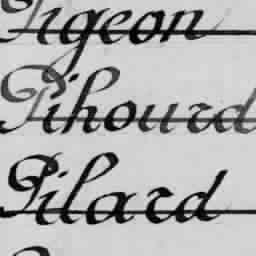 Pigeon
Pihourd
Pilard